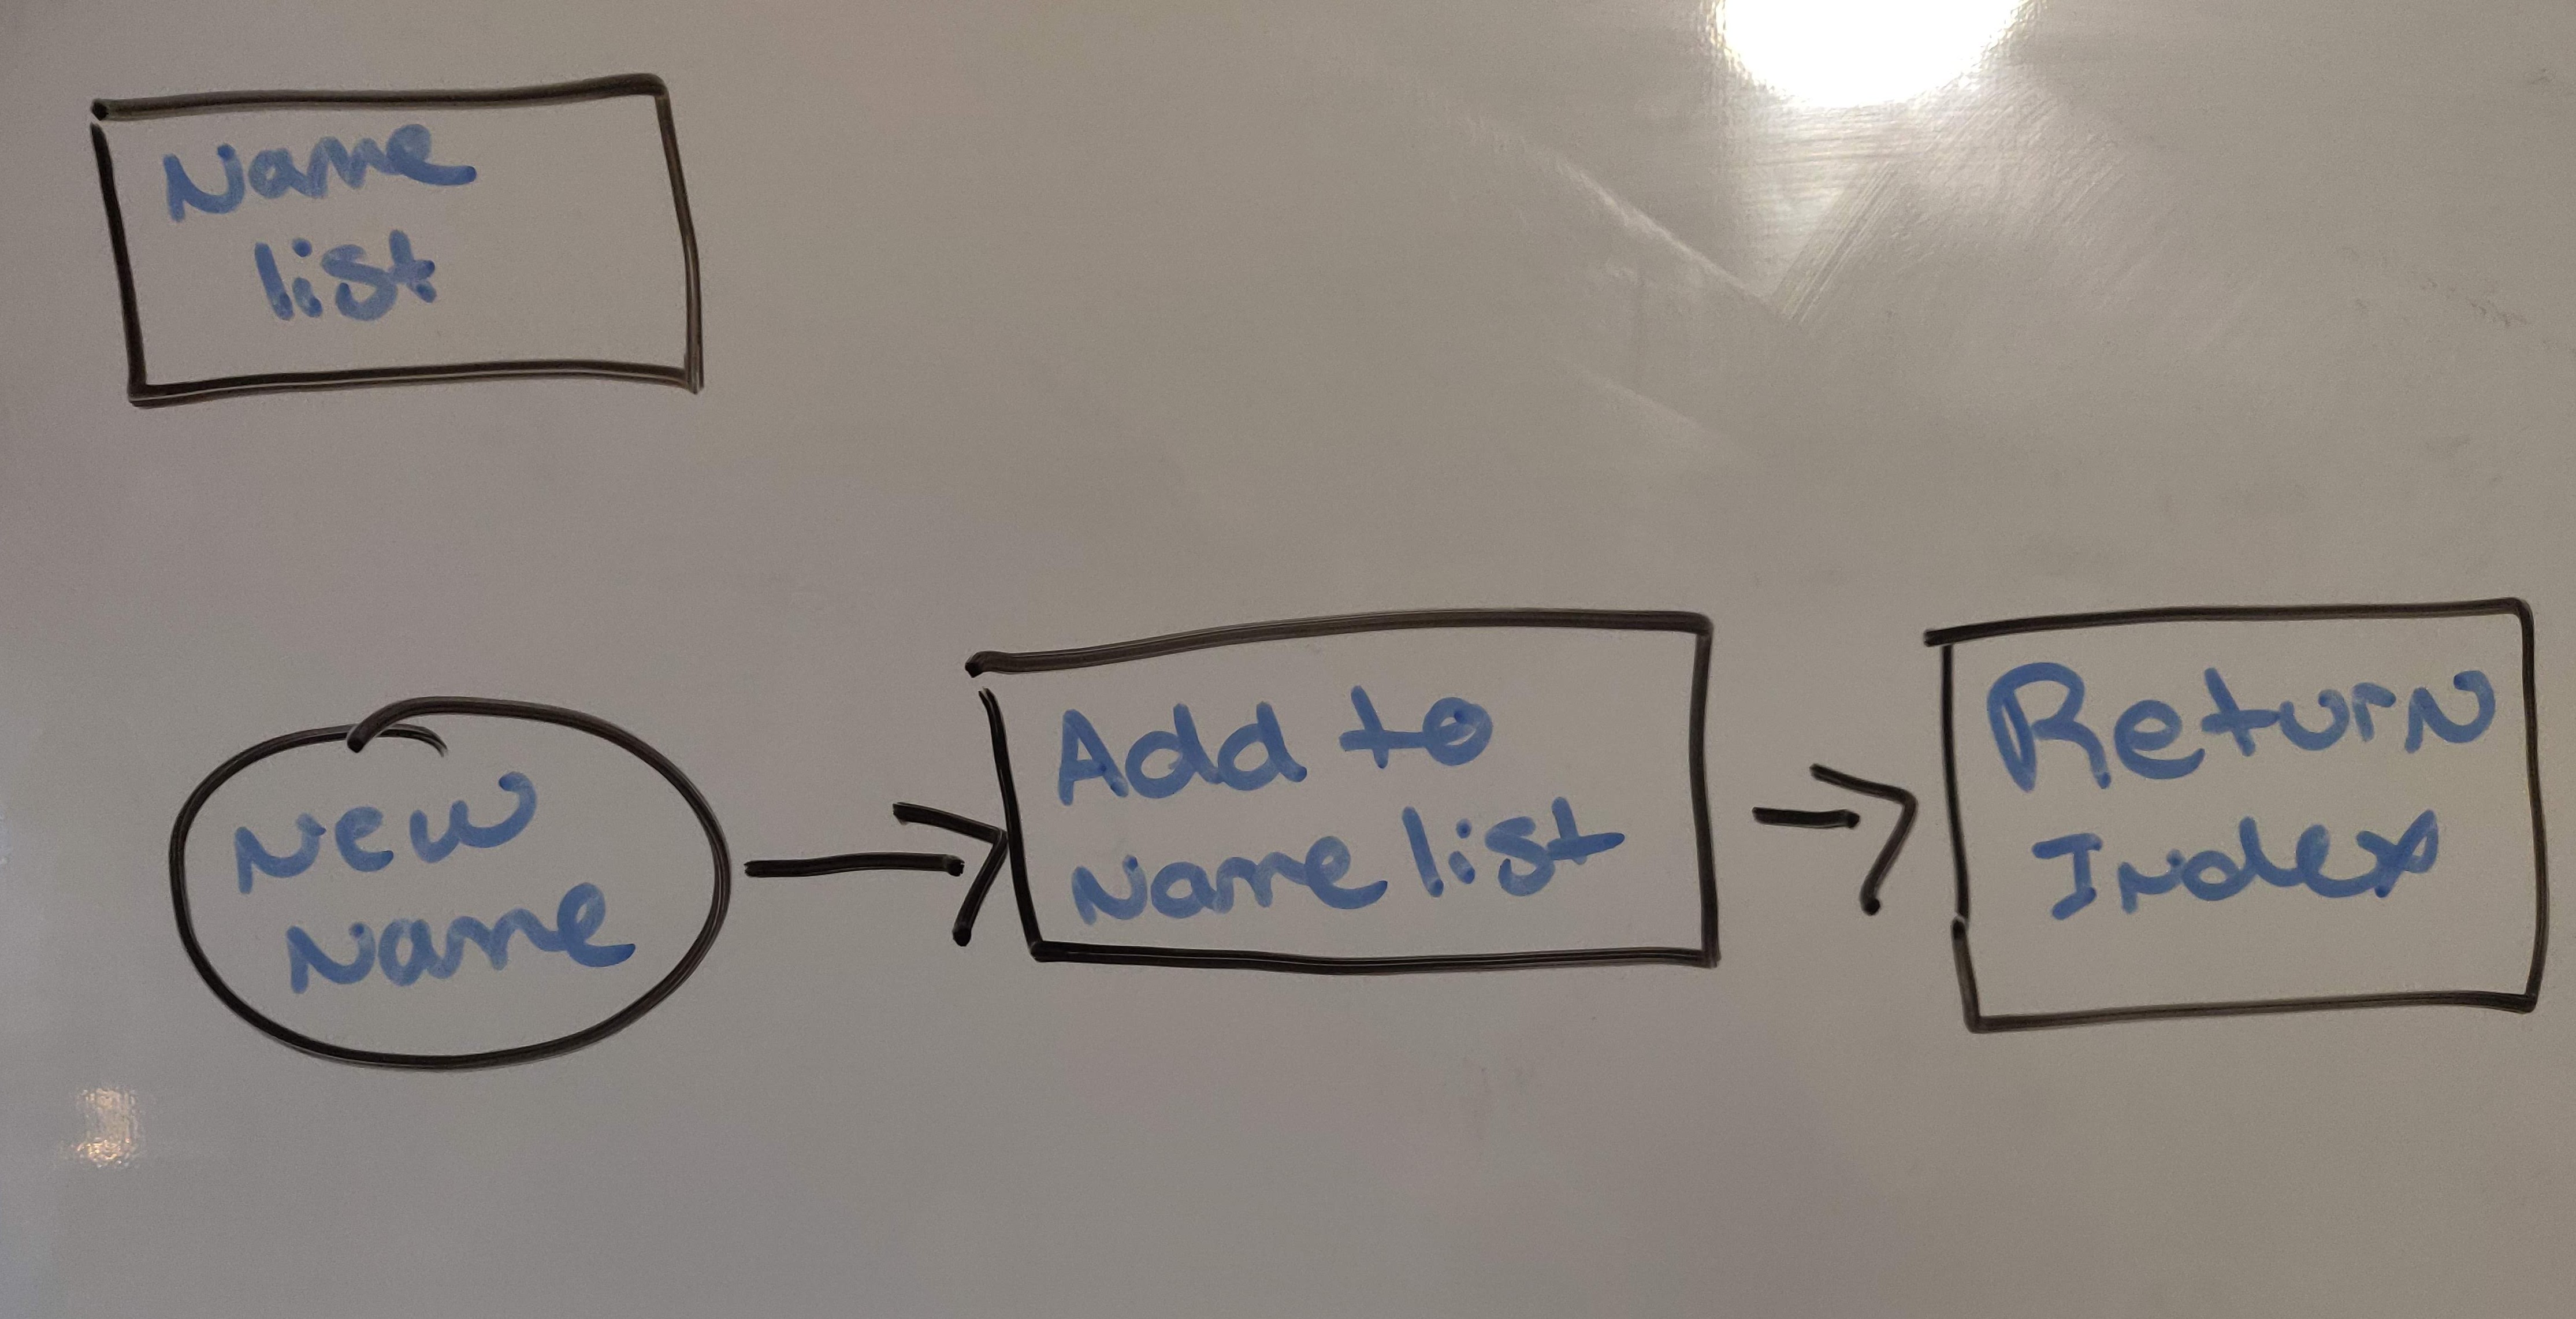 Name
list
New
Name
Add to
Name list
Return
Index